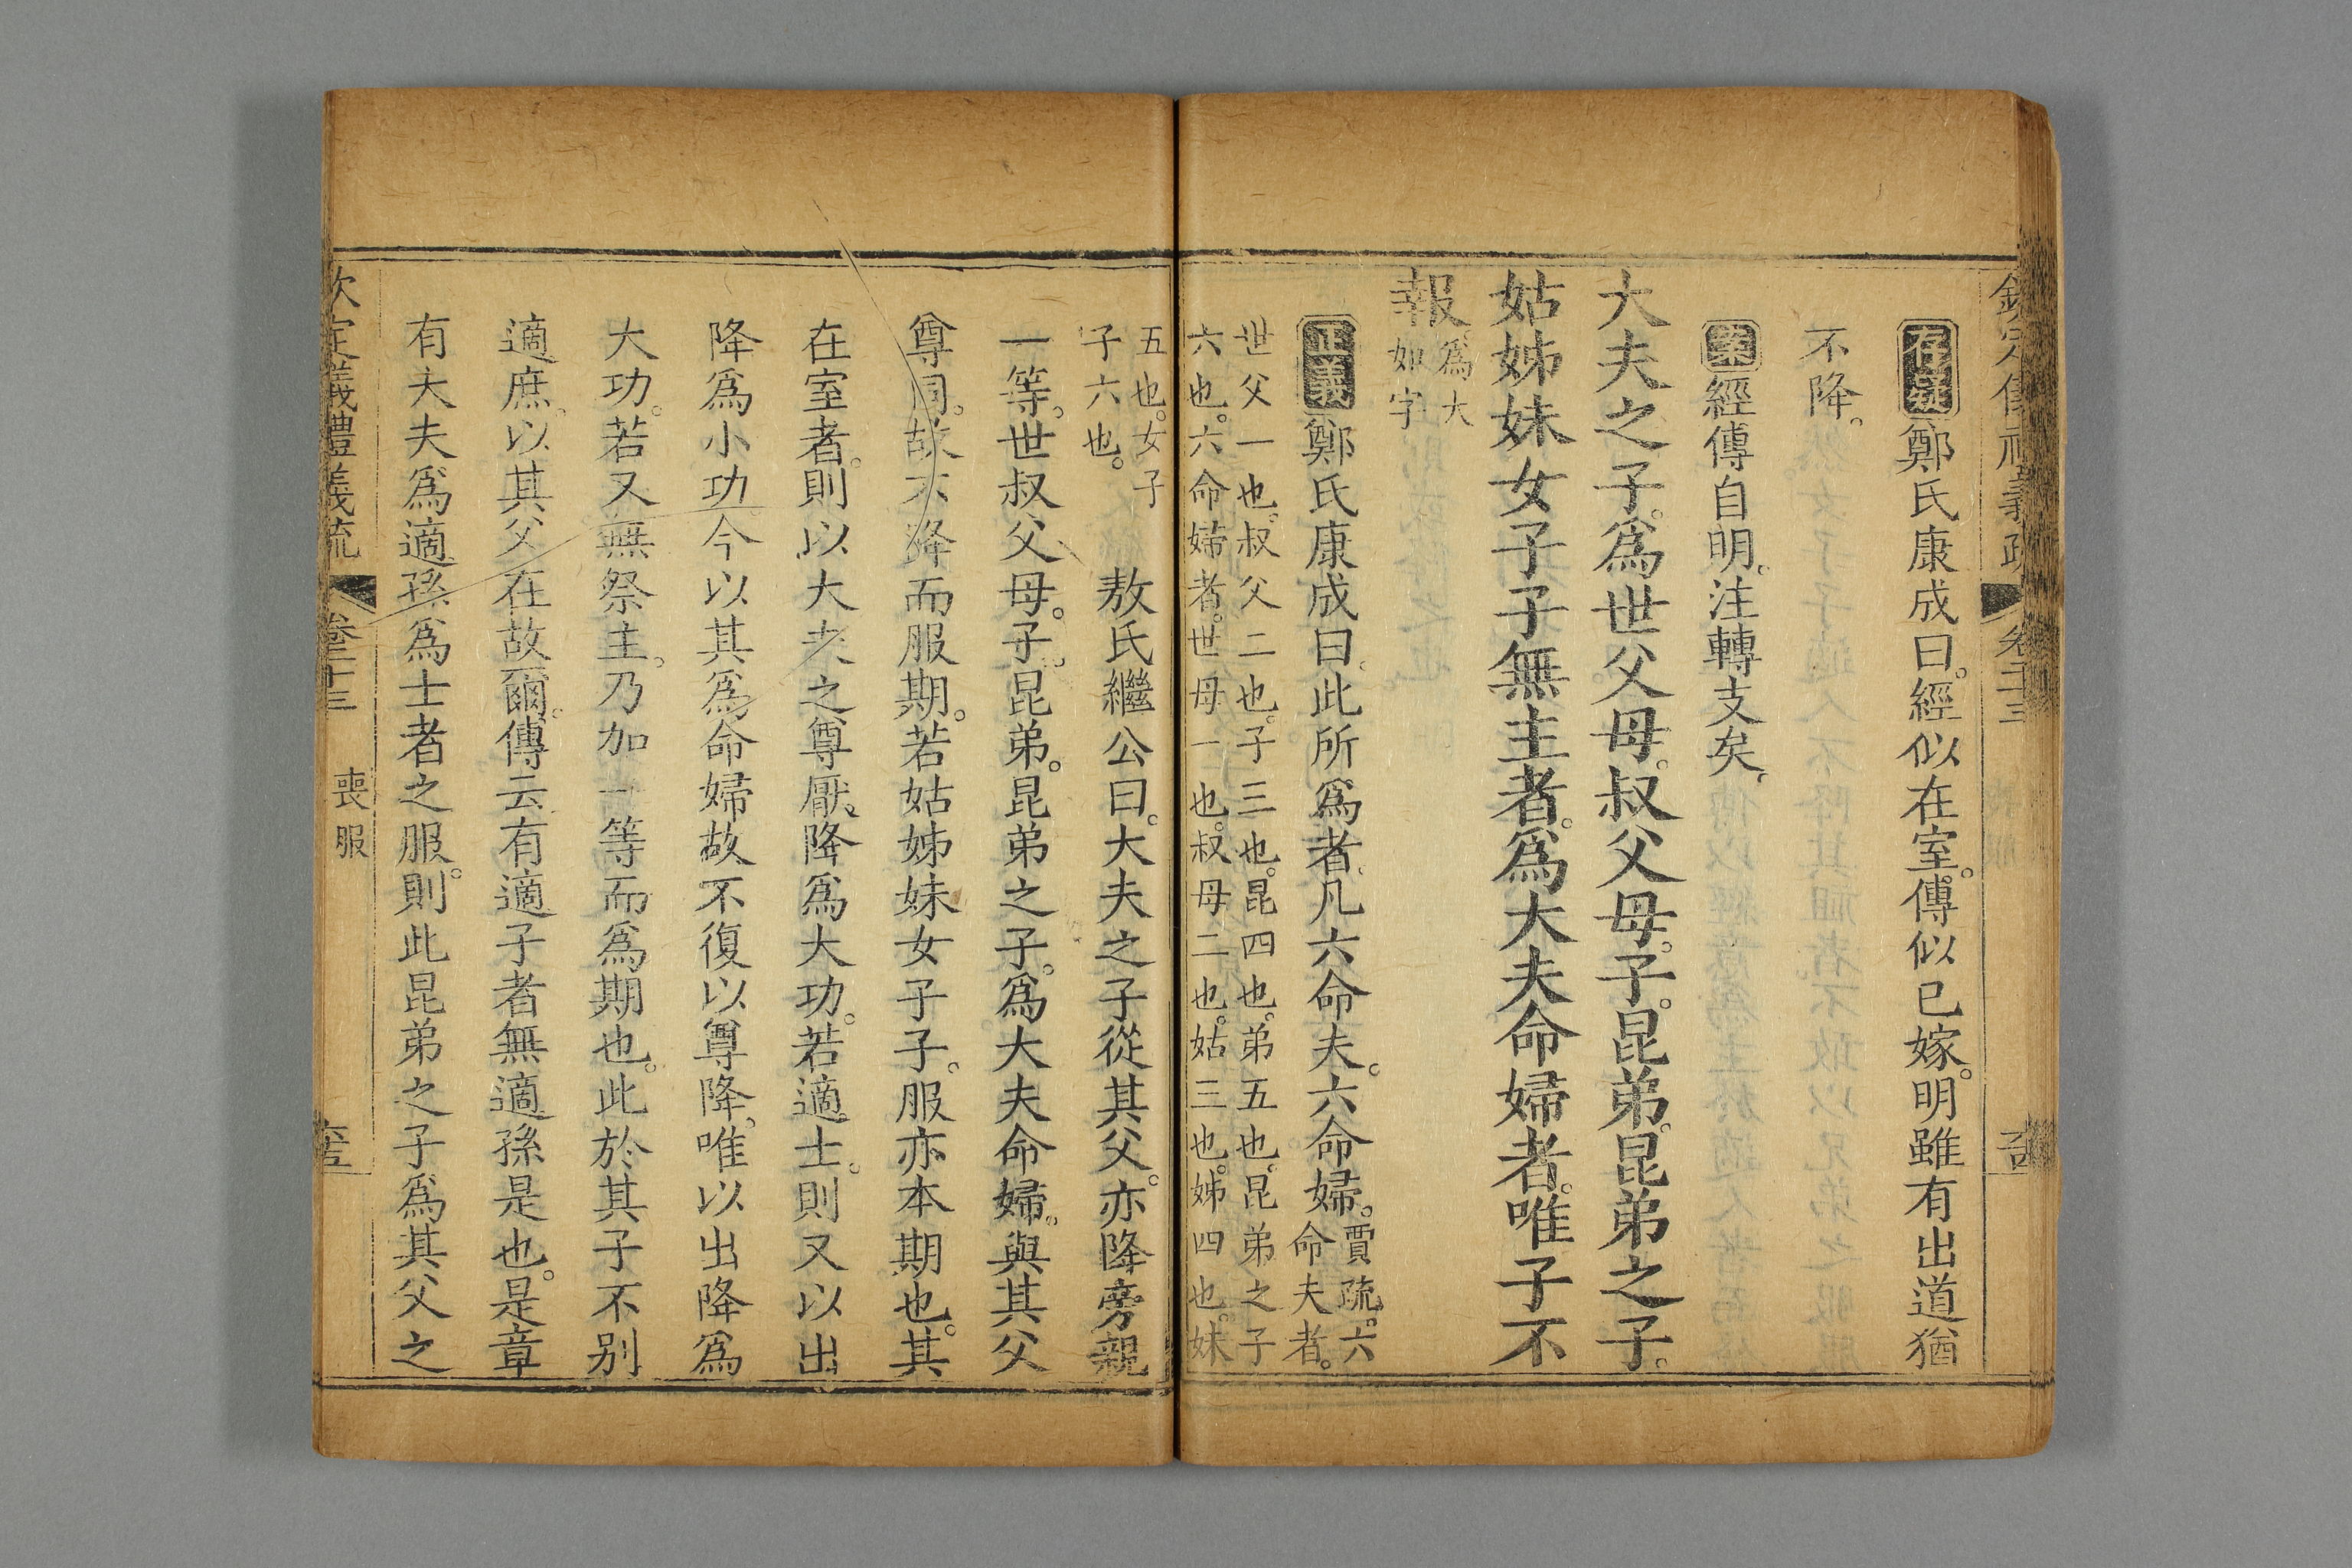 欽定儀禮義疏 卷二十三
存疑鄭氏康成曰。經似在室。傳似已嫁。明雖有出道猶
不降。
案經傳自明。注轉支矣。
大夫之子。爲世父母。叔父母。子。昆弟。昆弟之子。
姑姊妹女子子無主者。爲大夫命婦者。唯子不
報爲大如字
正義鄭氏康成曰。此所爲者。凡六命夫。六命婦。賈疏。六命夫者。
世父一也。叔父二也。子三也。昆四也。弟五也。昆弟之子
六也。六命婦者。世母一也。叔母二也。姑三也。姊四也。妹
五也。女子
子六也。
敖氏繼公曰。大夫之子從其父。亦降旁親
一等。世叔父母。子。昆弟。昆弟之子。爲大夫命婦。與其父
尊同。故不降而服期。若姑姊妹女子子。服亦本期也。其
在室者。則以大夫之尊厭。降爲大功。若適士。則又以出
降爲小功。今以其爲命婦。故不復以尊降。唯以出降爲
大功。若又無祭主。乃加一等而爲期也。此於其子不别
適庶。以其父在故爾。傳云。有適子者無適孫是也。是章
有大夫爲適孫爲士者之服。則此昆弟之子爲其父之
欽定儀禮義疏 卷二十三 喪服